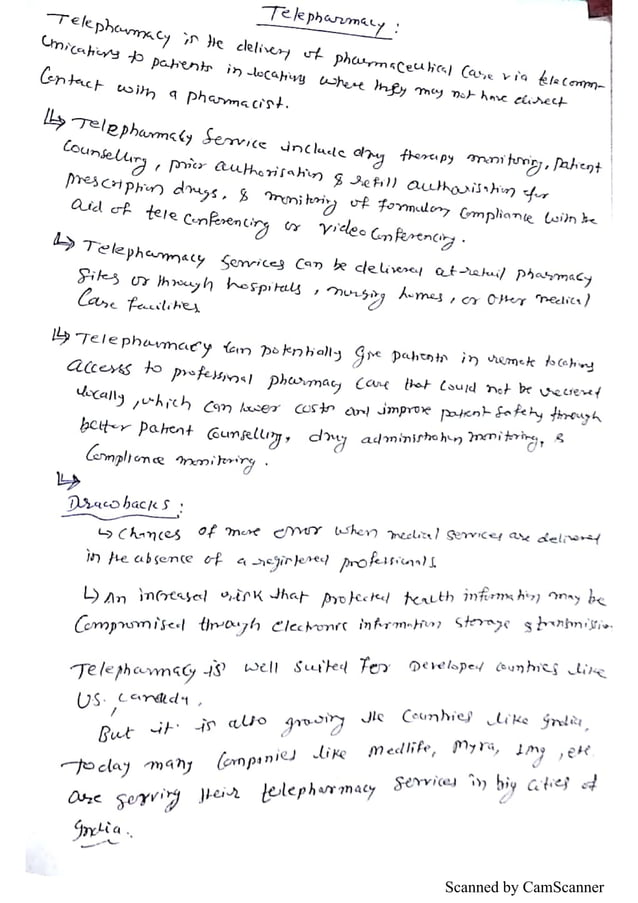 Telepharmacy :
Telepharmacy is the delivery of pharmaceutical care via telecomm-
unications to patients in locations where they may not have direct
Contact with a pharmacist.
↳ Telepharmacy Service include drug therapy monitoring, patient
Counselling, prior authorisation & refill authorisation for
prescription drugs, & monitoring of formulary compliance with the
aid of tele conferencing or video conferencing.
↳ Telepharmacy services can be delivered at retail pharmacy
Sites or through hospitals, nursing homes, or other medical
Care facilities
↳ Telepharmacy can potentially give patients in remote locations
access to professional pharmacy care that could not be recieved
locally, which can lower costs and improve patient safety through
better patient counselling, drug administration monitoring, &
Compliance monitoring.
↳
Drawbacks :
↳ Chances of more error when medical services are delivered
in the absence of a registered professionals
↳ An increased risk that protected health information may be
Compromised through electronic information storage & transmission
Telepharmacy is well suited for developed countries like
US, Canada,
But it is also growing the Countries like India,
today many companies like Medlife, Myra, 1mg, etc
are serving their telepharmacy services in big cities of
India.
Scanned by CamScanner